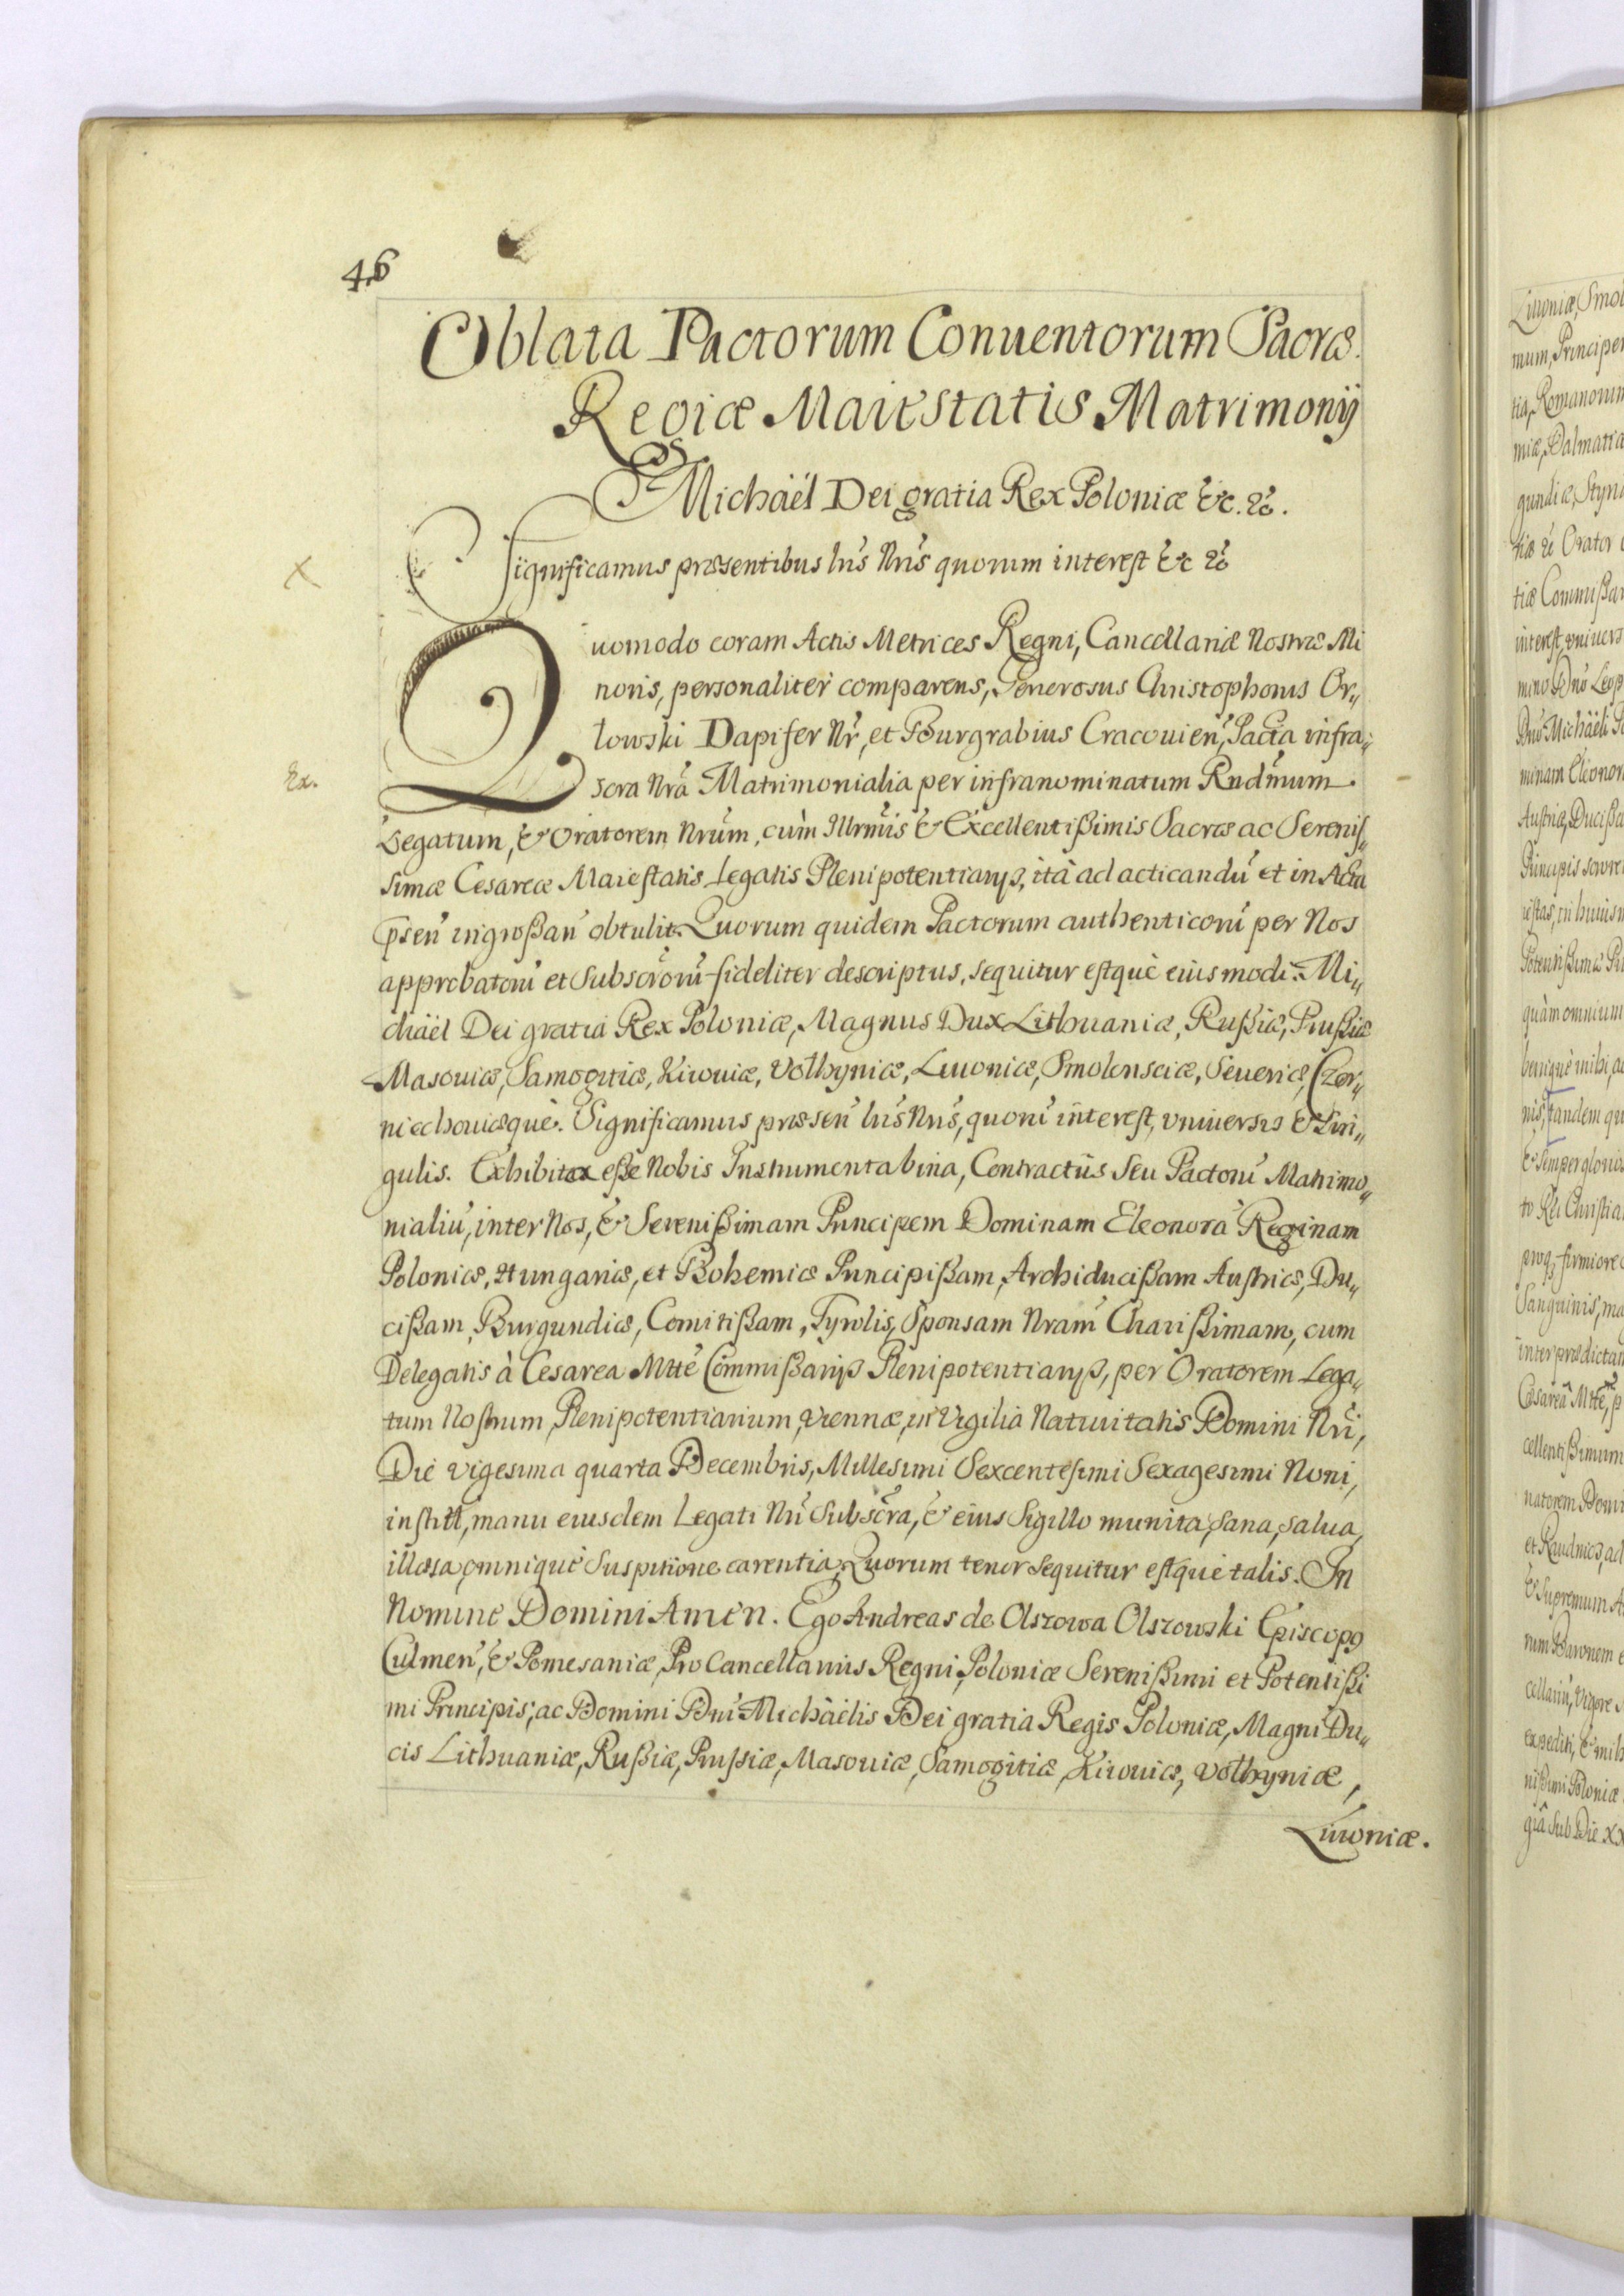 46
Oblata Pactorum Conuentorum Sacræ
Regiæ Maiestatis Matrimonij
Michäel Dei gratia Rex Poloniæ &c. &c.
Significamus præsentibus lrĩs Nrĩs quorum interest &c &c
X
Quomodo coram Actis Metrices Regni, Cancellariæ Nostræ Mi
noris, personaliter comparens, Generosus Christophorus Or„
lowski Dapifer Nr̃, et Burgrabius Cracouień, Pacta infra„
scra Nrã Matrimonialia per infranominatum Rndm̃um
Ex.
Legatum, & Oratorem Nrũm, cùm Illrm̃is & Excellentißimis Sacræ ac Sereniſ„
simæ Cesareæ Maiestatis Legatis Plenipotentiarijs, ità ad acticandũ et in Acta
p̃señ ingroßañ obtulit. Quorum quidem Pactorum authenticorũ per Nos
approbatorũ et Subscr̃orũ fideliter descriptus, sequitur estquè eiusmodi. Mi„
chäel Dei gratia Rex Poloniæ, Magnus Dux Lithuaniæ, Rußiæ, Prußiæ
Masouiæ, Samogitiæ, Kiiouiæ, Volhyniæ, Liuoniæ, Smolensciæ, Seueriæ, Czer„
niechouiæquè. Significamus præseñ lrĩs Nrĩs, quorũ interest, vniuersis & Sin„
gulis. Exhibita eße Nobis Instrumenta bina, Contractûs Seu Pactorũ Matrimo„
nialiũ, inter Nos, & Serenißimam Principem Dominam Eleonorã Reginam
Poloniæ, Hungariæ, et Bohemiæ Principißam, Archiducißam Austriæ, Du„
cißam Burgundiæ, Comitißam Tyrolis, Sponsam Nram̃ Charißimam, cum
Delegatis à Cesarea Mtte Commißarijs Plenipotentiarijs, per Oratorem Lega„
tum Nostrum Plenipotentiarium, Viennæ, in Vigilia Natiuitatis Domini Nrĩ,
Die vigesima quarta Decembris, Millesimi Sexcentesimi Sexagesimi Noni,
instit, manu eiusdem Legati Nrĩ Subscr̃a, & eius Sigillo munita, sana, salua,
illæsa, omniquè Suspitione carentia, Quorum tenor sequitur estquè talis. In
Nomine Domini Amen. Ego Andreas de Olszowa Olszowski Episcopꝯ
Culmeñ, & Pomesaniæ, ProCancellarius Regni Poloniæ Serenißimi et Potentißi
mi Principis, ac Domini Dnĩ Michäelis Dei gratia Regis Poloniæ, Magni Du„
cis Lithuaniæ, Rußiæ, Prußiæ, Masouiæ, Samogitiæ, Kiiouiæ, Volhyniæ,
Liuoniæ.